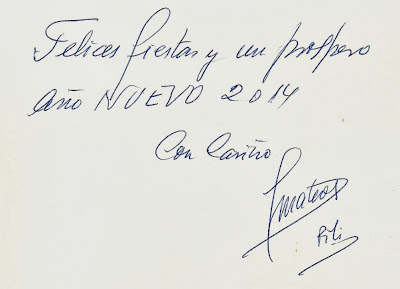 Felices fiestas y un prospero
año NUEVO 2014
Con Cariño
Jmateos
Pili